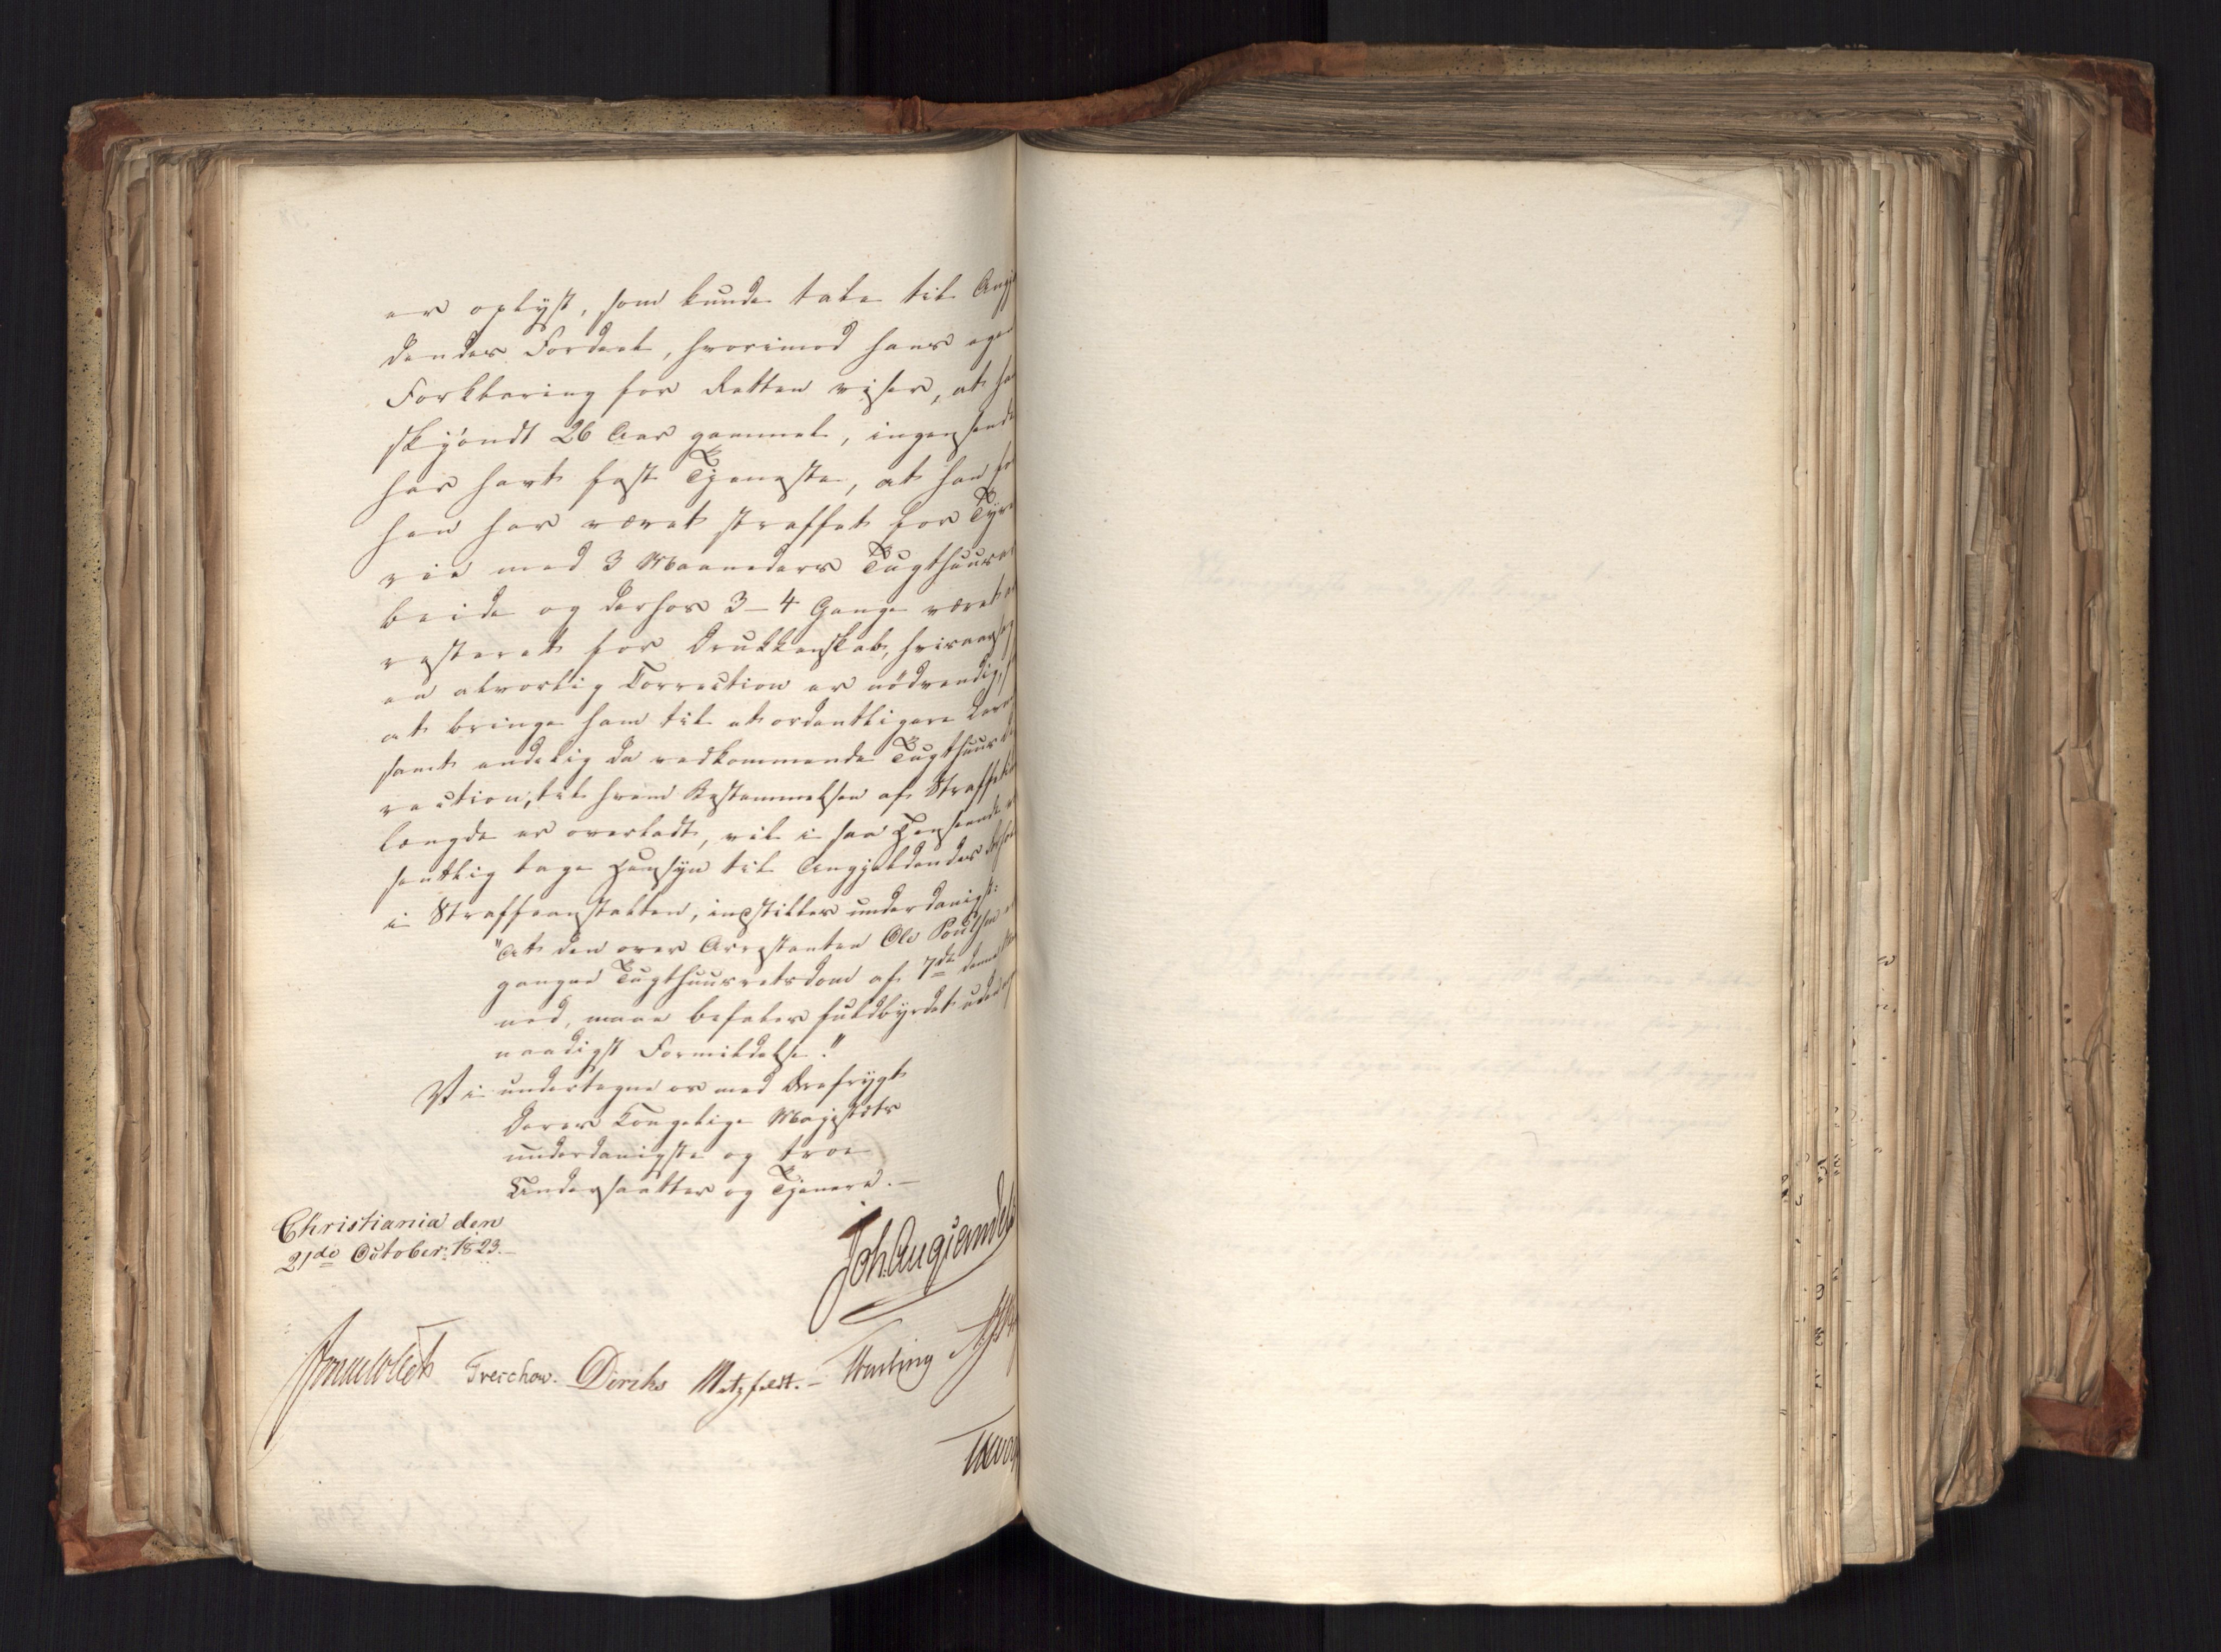 er oplyst, som kunde tale til Angjel
dendes Fordeel, hvorimod hans egen
Forklaring for Retten viser, at ha
skjöndt 26 Aar gammel, ingensinde
har havt fast Tjeneste, at han for
hen har været straffet for Tyve
rie med 3 Maaneders Tugthuusar
beide og derhos 3-4 Gange været ar
resteret for Drukkenskab, hvisaarsag
en alvorlig Correction er nödvendig, f
at bringe ham til et ordentligere Levn
samt endelig da vedkommende Tugthuusdi
rection, til hvem Bestemmelsen af Straffetid
længde er overladt, vil i saa Henseende
sentlig tage Hensyn til Angjeldendes Forh
i Straffeanstalten; indstilles underdanigst:
"At den over Arrestanten Ole Poulsen er
gangne Tugthuusretsdom af 7de denne Maa
ned, maae befales fuldbyrdet uden
naadigst Formildelse."
Vi undertegne os med Ærefrygt
Deres Kongelige Majestæts
underdanigste og troe
Undersaatter og Tjenere.-
Christiania den
21de October 1823.-
Joh. Aug. Sandels
Sommerhielm Treschow. Diriks Motzfeldt.- Fasting